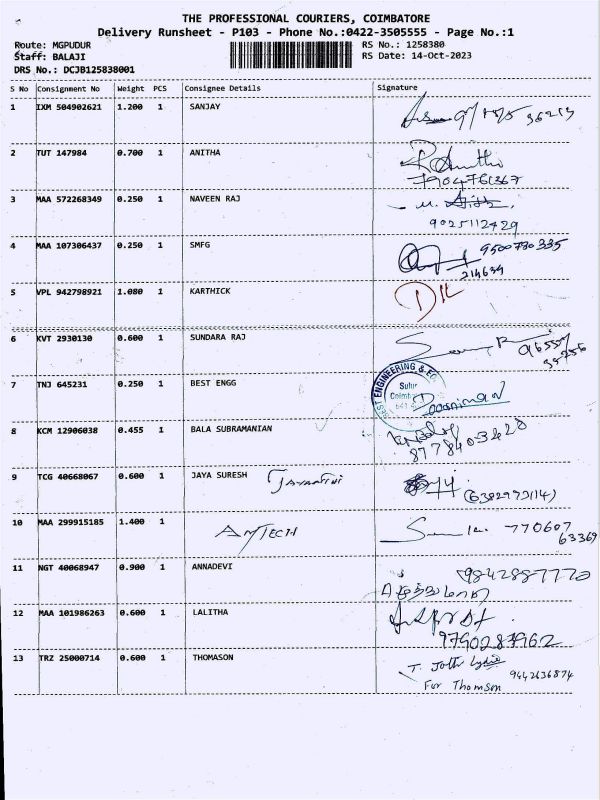 THE PROFESSIONAL COURIERS, COIMBATORE
Delivery Runsheet - P103 - Phone No.:0422-3505555 - Page No.:1
Route: MGPUDUR
RS No.: 1258380
Staff: BALAJI
RS Date: 14-Oct-2023
DRS No.: DCJB125838001
S No Consignment No Weight PCS Consignee Details Signature
1 IXM 504902621 1.200 1 SANJAY
2 TUT 147984 0.700 1 ANITHA
7904761367
3 MAA 572268349 0.250 1 NAVEEN RAJ
9025112429
4 MAA 107306437 0.250 1 SMFG 9500780335
214634
5 VPL 942798921 1.080 1 KARTHICK
6 KVT 2930130 0.600 1 SUNDARA RAJ
BEST ENGINEERING &
Sulur
7 TNJ 645231 0.250 1 BEST ENGG
8 KCM 12906038 0.455 1 BALA SUBRAMANIAN
8778403428
9 TCG 40668067 0.600 1 JAYA SURESH
10 MAA 299915185 1.400 1 AMTECH 770607
63369
11 NGT 40068947 0.900 1 ANNADEVI 9842887770
12 MAA 101986263 0.600 1 LALITHA
13 TRZ 25000714 0.600 1 THOMASON
9442636874
For Thomson